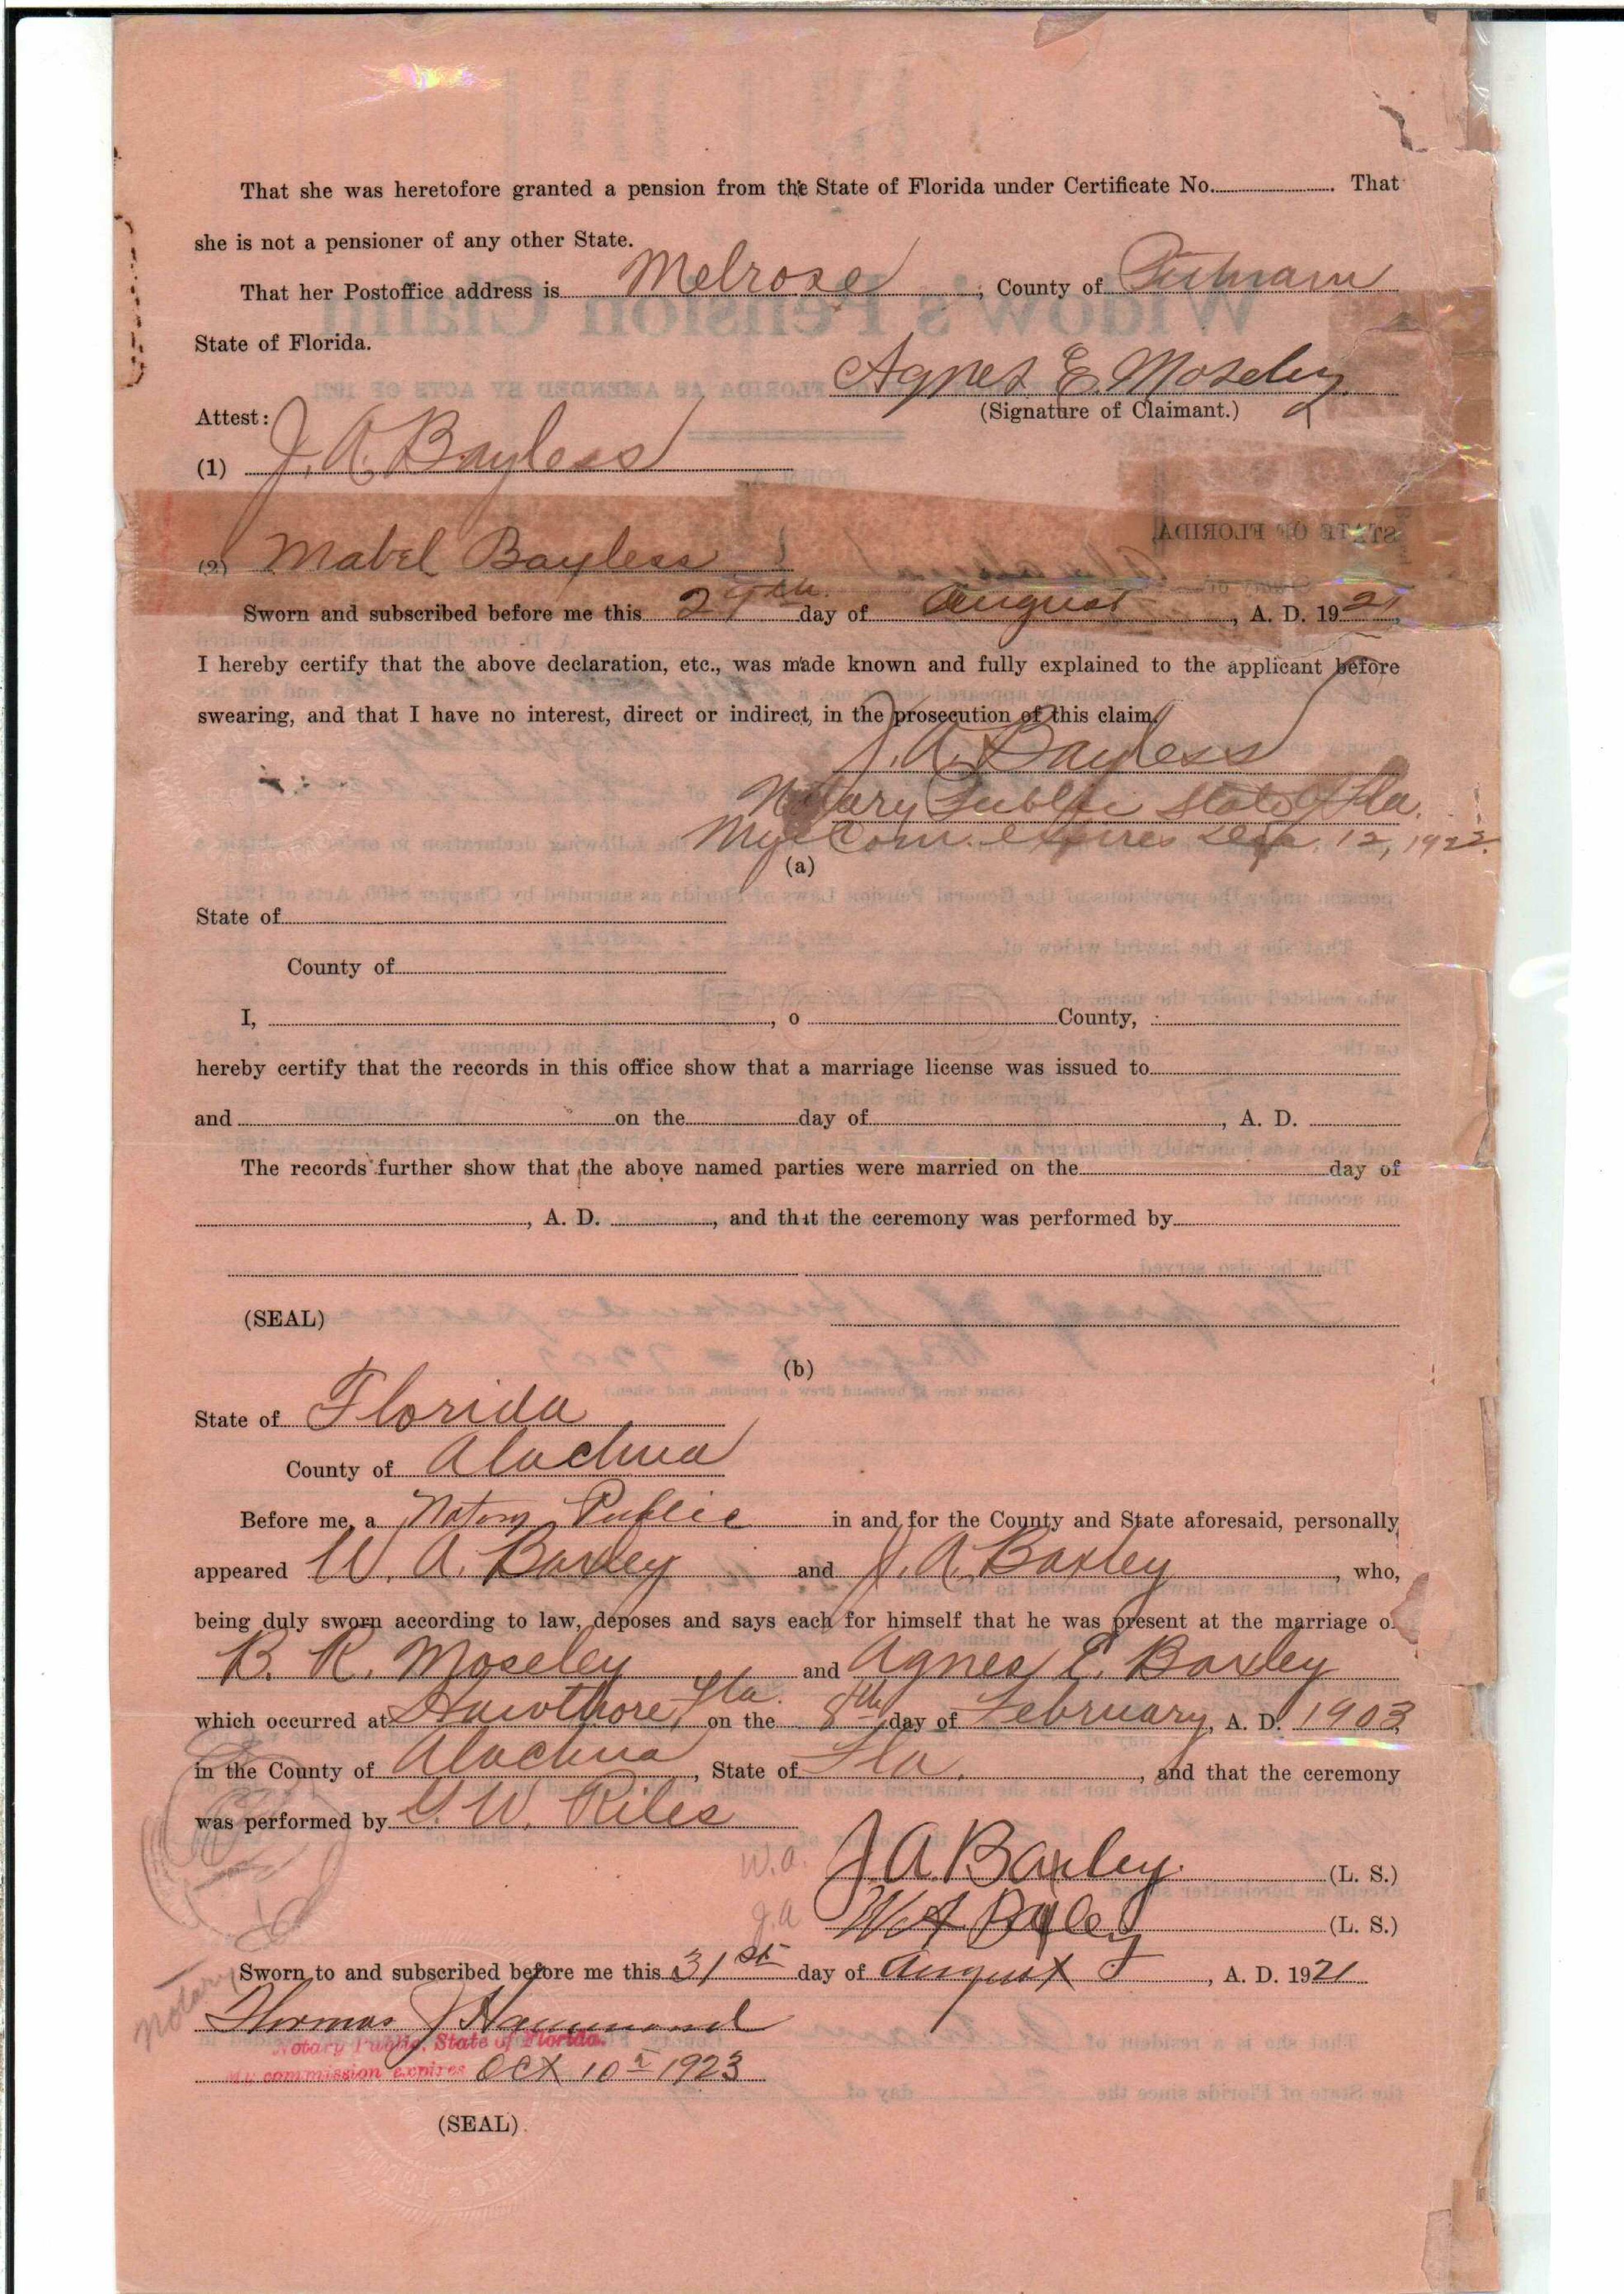 That she was heretofore granted a pension from the State of Florida under Certificate No. . That
she is not a pensioner of any other State.
That her Postoffice address is Melrose, County of Putnam
State of Florida.
Agnes E. Moseley
Attest: (Signature of Claimant.)
(1) J. A. Bayless
(2) Mabel Bayless
Sworn and subscribed before me this th day of August, A. D. 1921
I hereby certify that the above declaration, etc., was made known and fully explained to the applicant before
swearing, and that I have no interest, direct or indirect, in the prosecution of this claim.
J. A. Bayless
Notary Public State of Fla.
My Com. expires 12, 1922.
(a)
State of
County of
I, , o County,
hereby certify that the records in this office show that a marriage license was issued to
and on the day of , A. D.
The records further show that the above named parties were married on the day of
, A. D. , and that the ceremony was performed by
(SEAL)
(b)
State of Florida
County of Alachua
Before me, a Notary Public in and for the County and State aforesaid, personally
appeared W. A. Baxley and J. A. Baxley, who,
being duly sworn according to law, deposes and says each for himself that he was present at the marriage of
B. R. Moseley and Agnes E. Baxley
which occurred at Hawthorne, Fla. on the 8th day of February, A. D. 1903
in the County of Alachua, State of Fla., and that the ceremony
was performed by G. W. Riles
W.A. J A Baxley. (L. S.)
J.A W A Baxley (L. S.)
Sworn to and subscribed before me this 31st day of August, A. D. 1921
Notary
Thomas J Hammond
Notary Public, State of Florida.
My commission expires Oct 10 1923
(SEAL)